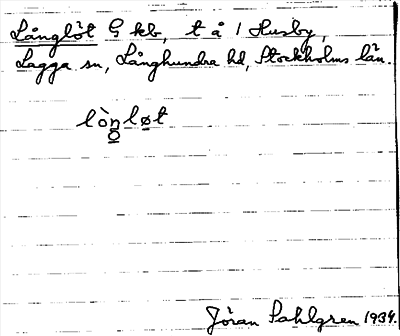 Långlöt G kb, t å 1 Husby,
Lagga sn, Långhundra hd, Stockholms län.
lòn̥løt
Jöran Sahlgren 1934.